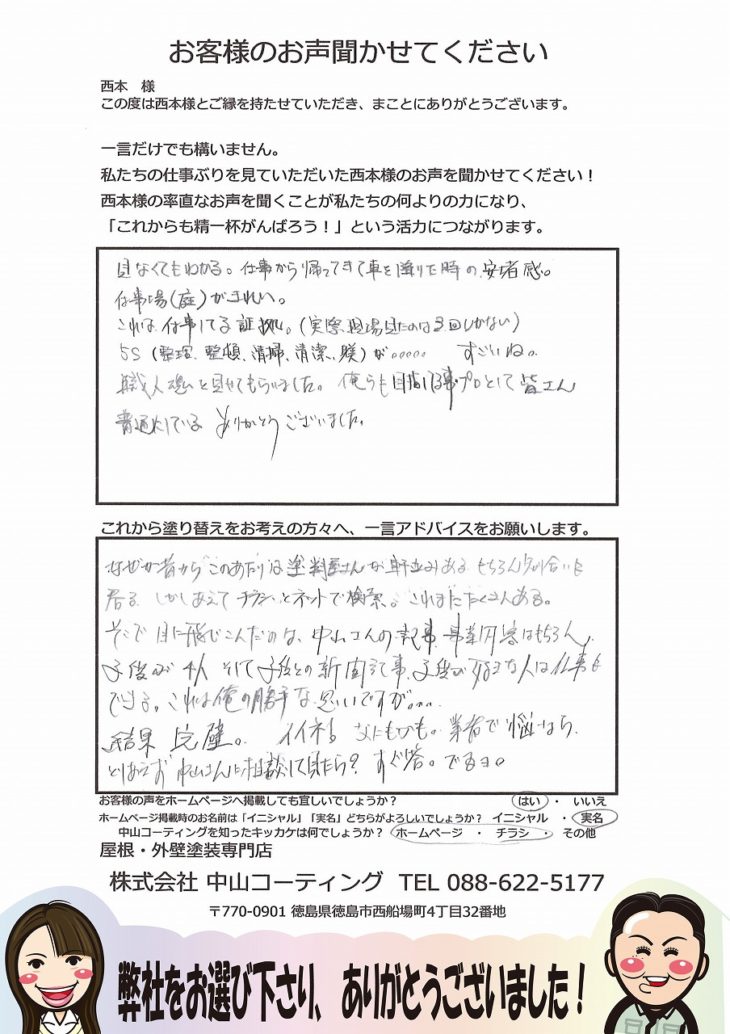 お客様のお声聞かせてください
西本 様
この度は西本様とご縁を持たせていただき、まことにありがとうございます。
一言だけでも構いません。
私たちの仕事ぶりを見ていただいた西本様のお声を聞かせてください！
西本様の率直なお声を聞くことが私たちの何よりの力になり、
「これからも精一杯がんばろう！」という活力につながります。
見なくてもわかる。仕事から帰ってきて車を降りた時の安堵感。
仕事場(庭)がきれい。
これは仕事してる証拠。(実際現場見たのは3回しかない)
5S (整理、整頓、清掃、清潔、躾)が。。。。。 すごいね。
職人魂を見せてもらいました。俺らも目指す プロとして皆さん
ありがとうございました。
これから塗り替えをお考えの方々へ、一言アドバイスをお願いします。
なぜか昔からこのあたりは塗料屋さんが軒並みある もちろん知り合いも
居る しかしあえてチラシとネットで検索。これはたくさんある。
そこで目に飛びこんだのは、中山さんの記事、事業内容はもちろん、
子供が 人 そして子供との新聞記事、子供が好きな人は仕事も
できる。これは俺の勝手な思いですが。。。
結果 完璧。 イイネ! なにもかも。業者で悩むなら、
とりあえず中山さんに相談して見たら？ すぐ答。でるヨ。
お客様の声をホームページへ掲載しても宜しいでしょうか？ はい ・ いいえ
ホームページ掲載時のお名前は「イニシャル」「実名」どちらがよろしいでしょうか？ イニシャル ・ 実名
中山コーティングを知ったキッカケは何でしょうか？ ホームページ ・ チラシ ・ その他
屋根・外壁塗装専門店
株式会社 中山コーティング TEL 088-622-5177
〒770-0901 徳島県徳島市西船場町4丁目32番地
弊社をお選び下さり、ありがとうございました！